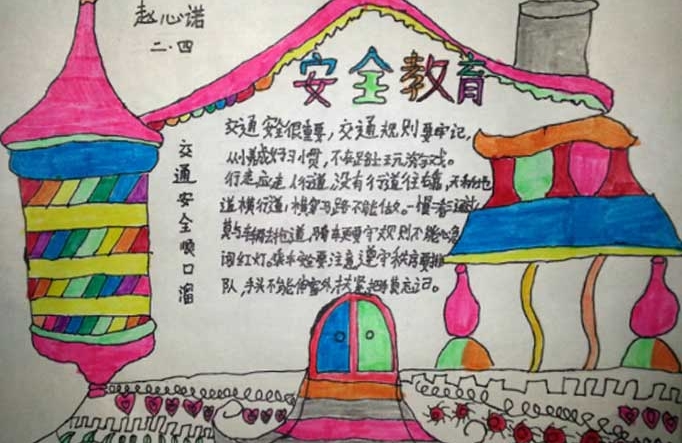 赵心诺
二.四
安全教育
交通安全顺口溜
交通安全很重要，交通规则要牢记，
从小养成好习惯，不在路上玩游戏。
行走应走人行道，没有行道往右靠，天桥地
道横行道，横穿马路不能做。一慢二看三通过，
莫与车辆去抢道，骑车更要守规则不能心急
闯红灯。乘车要注意，遵守秩序要排
队，手头不能伸窗外，扶紧把手莫忘记。